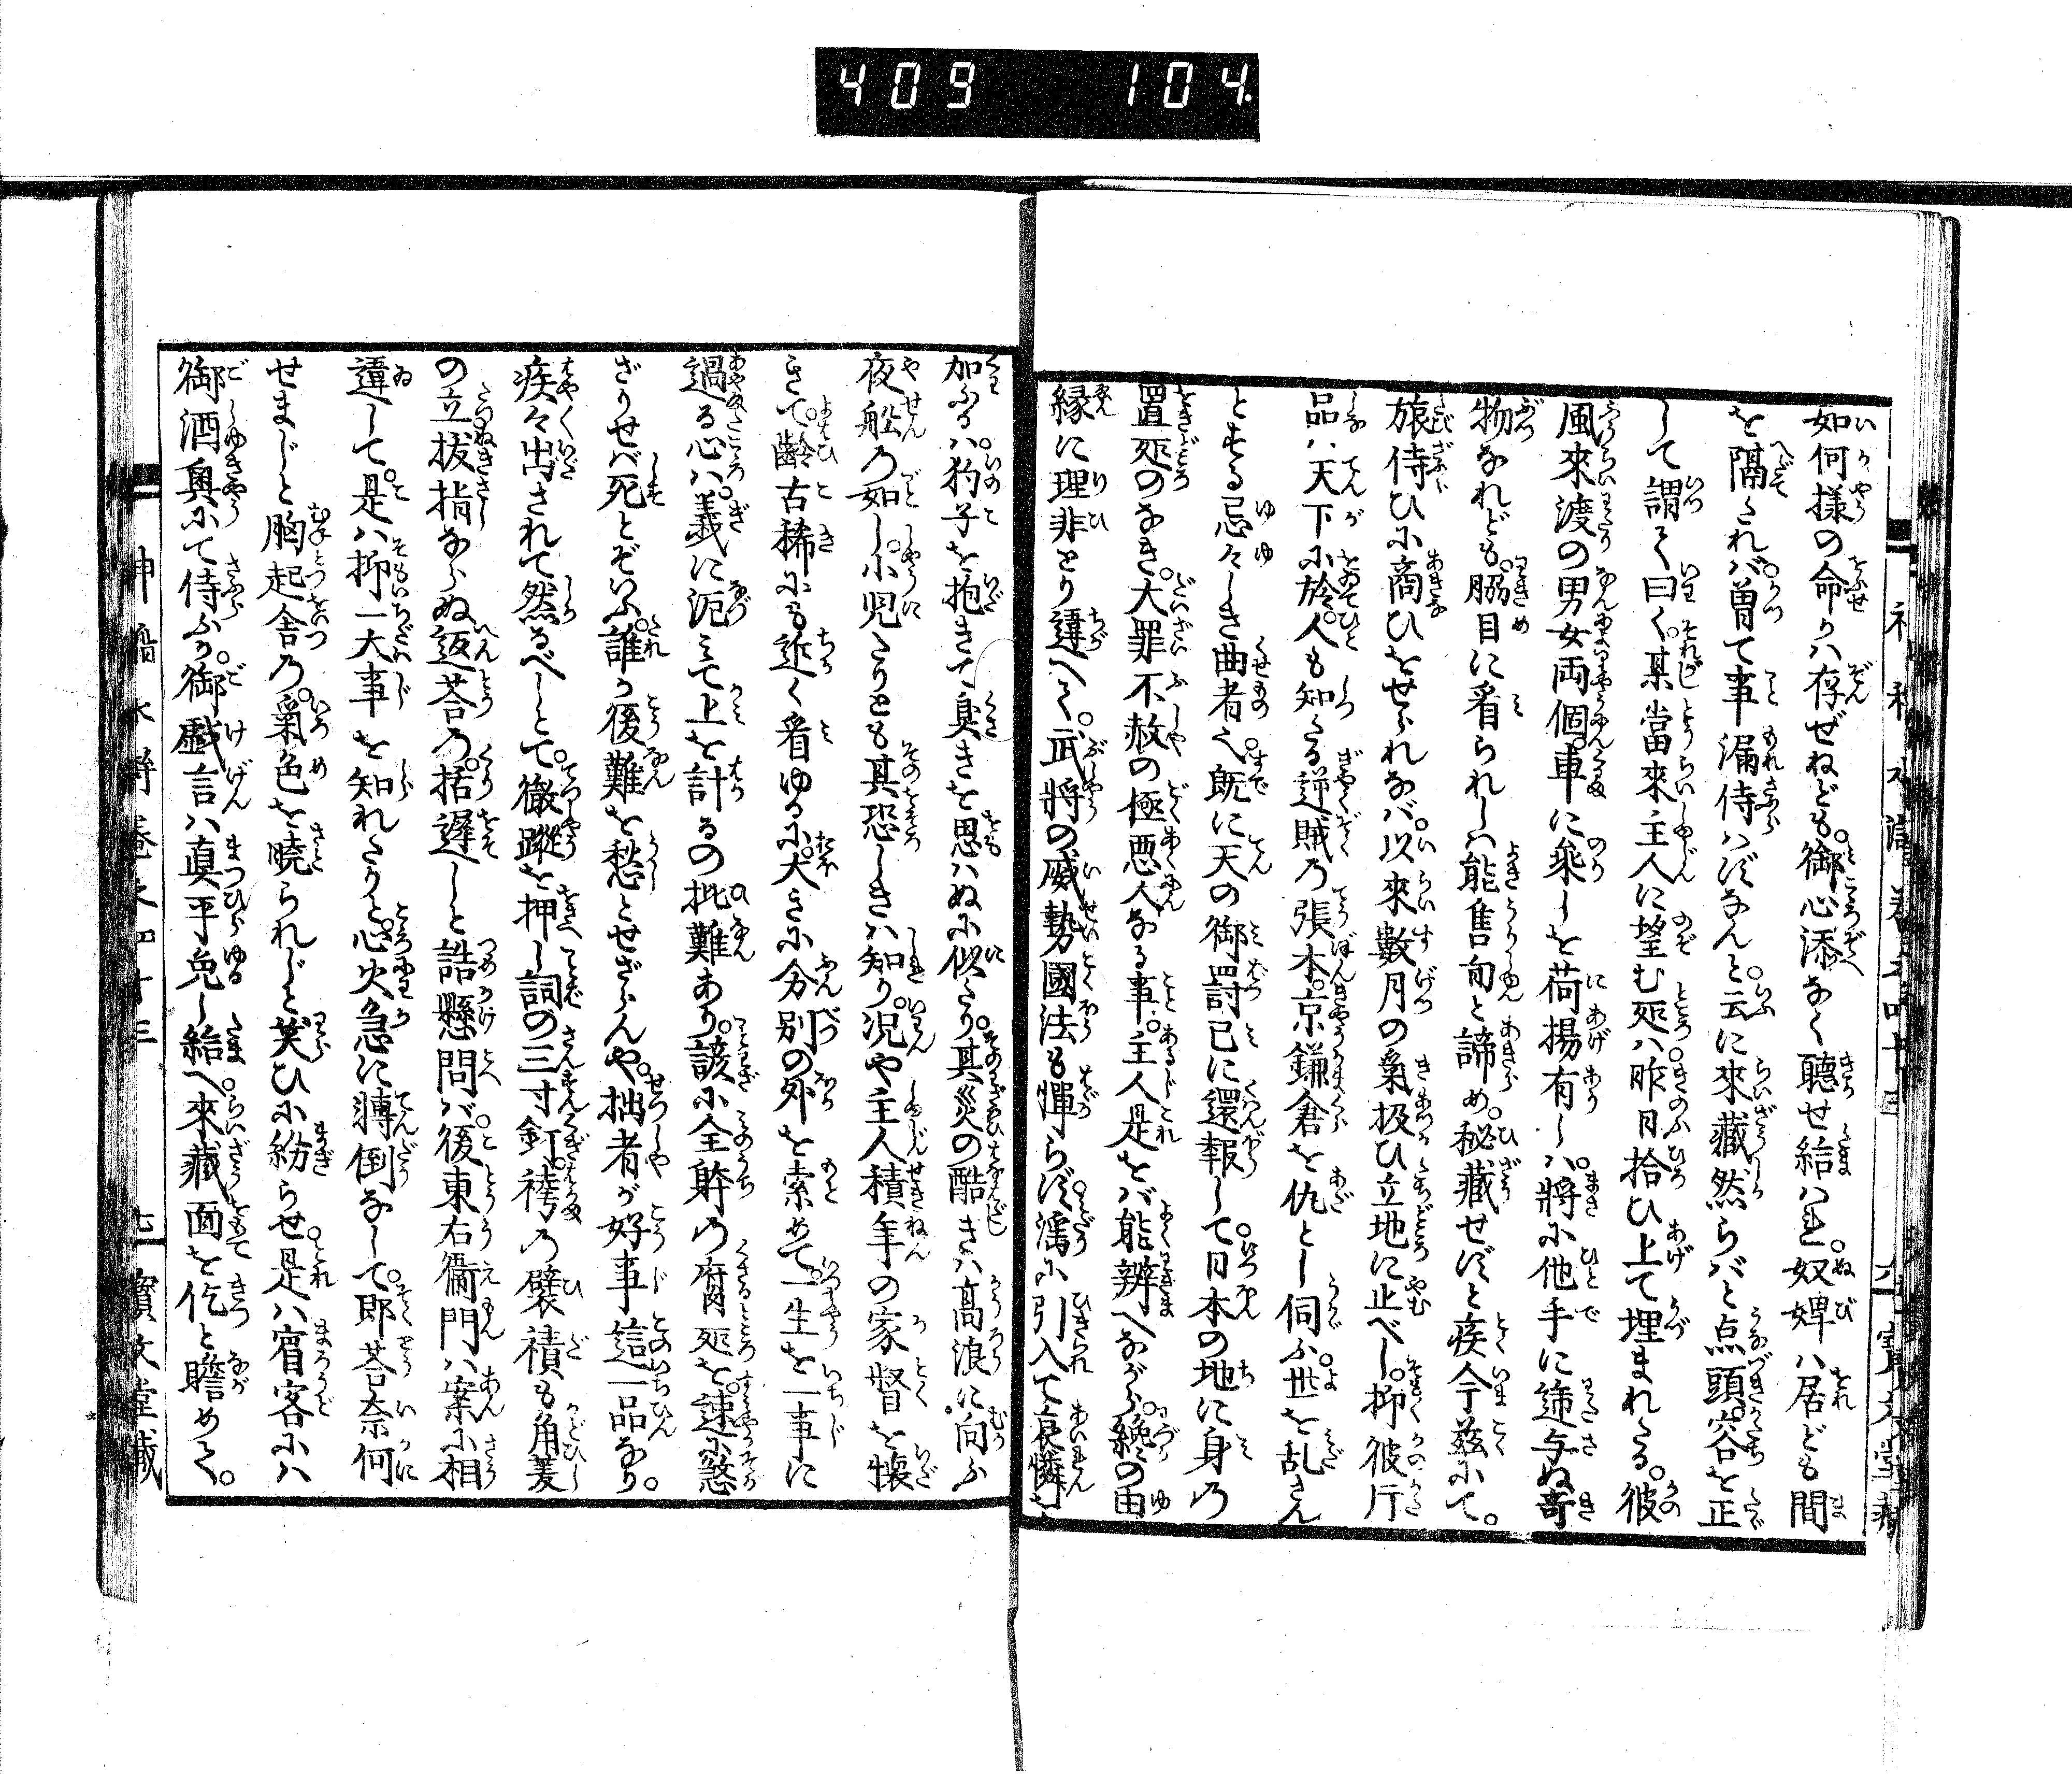 409 104
如何様の命かは存ぜねども。御心添なく聴せ給はれ。奴婢は居ども間
を隔たれば。曽て事漏侍はずなんと。云に來藏然らばと点頭。容を正
して謂て曰く。某當來主人に望む処は。昨日拾ひ上て埋まれたる。彼
風來渡の男女両個。車に乗しを荷揚有しは。將に他手に遞与ぬ奇
物なれども。脇目に看られしは能售旬と諦め。秘藏せずと疾今茲にて。
旅侍ひに商ひをせられなば。以來數月の氣扱ひ立地に止べし。抑彼行
品は天下に於。人も知たる逆賊の張本。京鎌倉を仇とし伺ふ。世を乱さん
とする忌々しき曲者也。既に天の御罸已に還報して。日本の地に身の
置処のなき。大罪不赦の極悪人なる事。主人是をば能辨へながら。纔の由
縁に理非をり違へて。武將の威勢國法も憚らず。濁に引入て哀憐を
加ふるは。豹子を抱きて臭きを思はぬに似たり。其災の酷きは高浪に向ふ
夜舩の如し。小児たりとも其恐しきは知り。况や主人積年の家督を懐
きて。齢古稀にも近く看ゆるに。大きに分別の外を索めて。一生を一事に
過る心は。義に泥みて上を計るの批難あり。諺に全躰の腐る処を。速に悠
ざりせば死とぞいふ。誰か後難を愁とせざらんや。拙者が好事這一品なり。
疾々出されて然るべしとて。徹蹤を押し詞の三寸釘。袴の襞積も角菱
の立拔指ならぬ返荅の。括遅しと詰懸問ば。後東右衞門は案に相
違して。是は抑一大事を知れたりと。心火急に轉倒なして。即荅奈何
せまじと胸起舎の。氣色を曉られじと笑ひに紛らせ。是は賓客には
御酒奥にて侍ふか。御戲言は真平免し給へ。來藏面を仡と瞻めて。